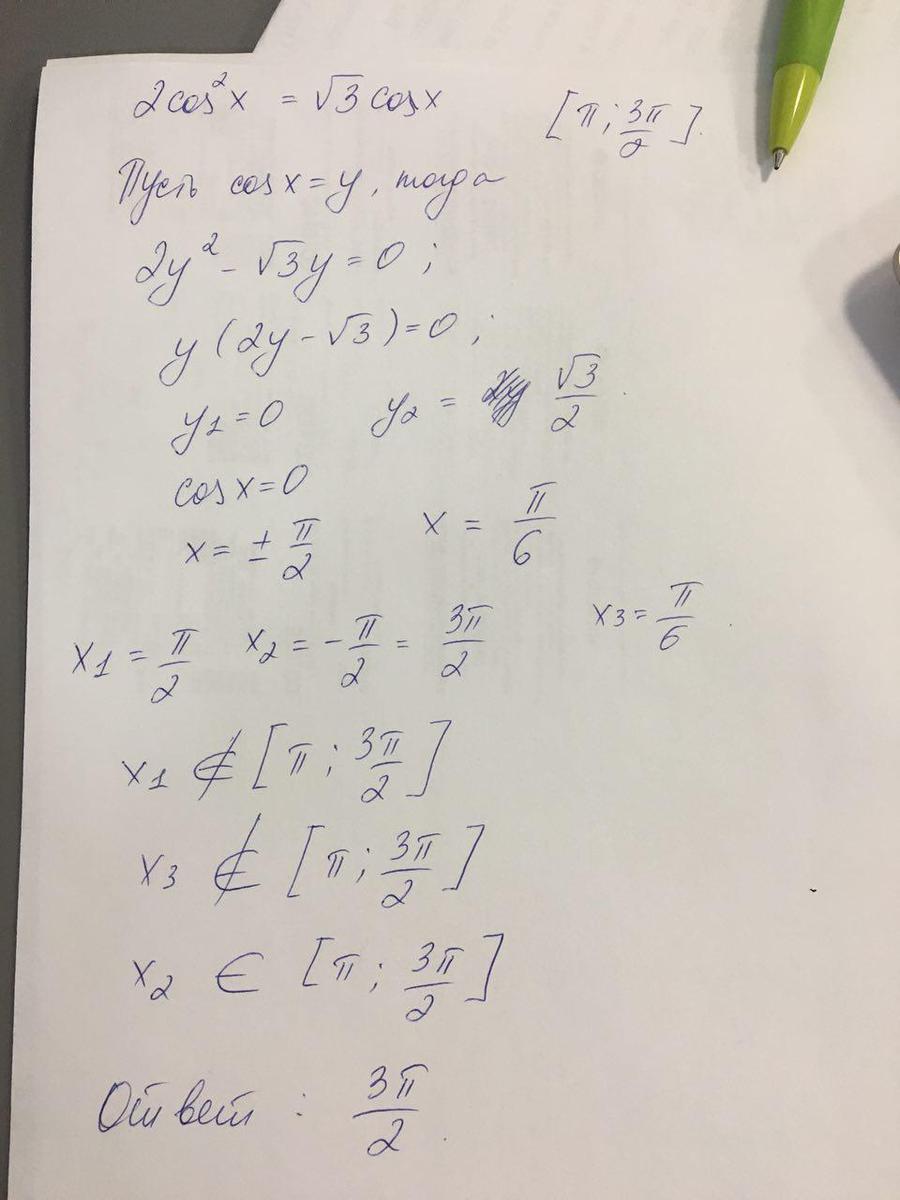 2cos²x = √3 cosx [π; 3π/2].
Пусть cosx = y, тогда
2y² - √3y = 0;
y(2y - √3) = 0;
y₁ = 0 y₂ = √3/2
cosx = 0
x = ± π/2 x = π/6
x₁ = π/2 x₂ = -π/2 = 3π/2 x₃ = π/6
x₁ ∉ [π; 3π/2]
x₃ ∉ [π; 3π/2]
x₂ ∈ [π; 3π/2]
Ответ: 3π/2.